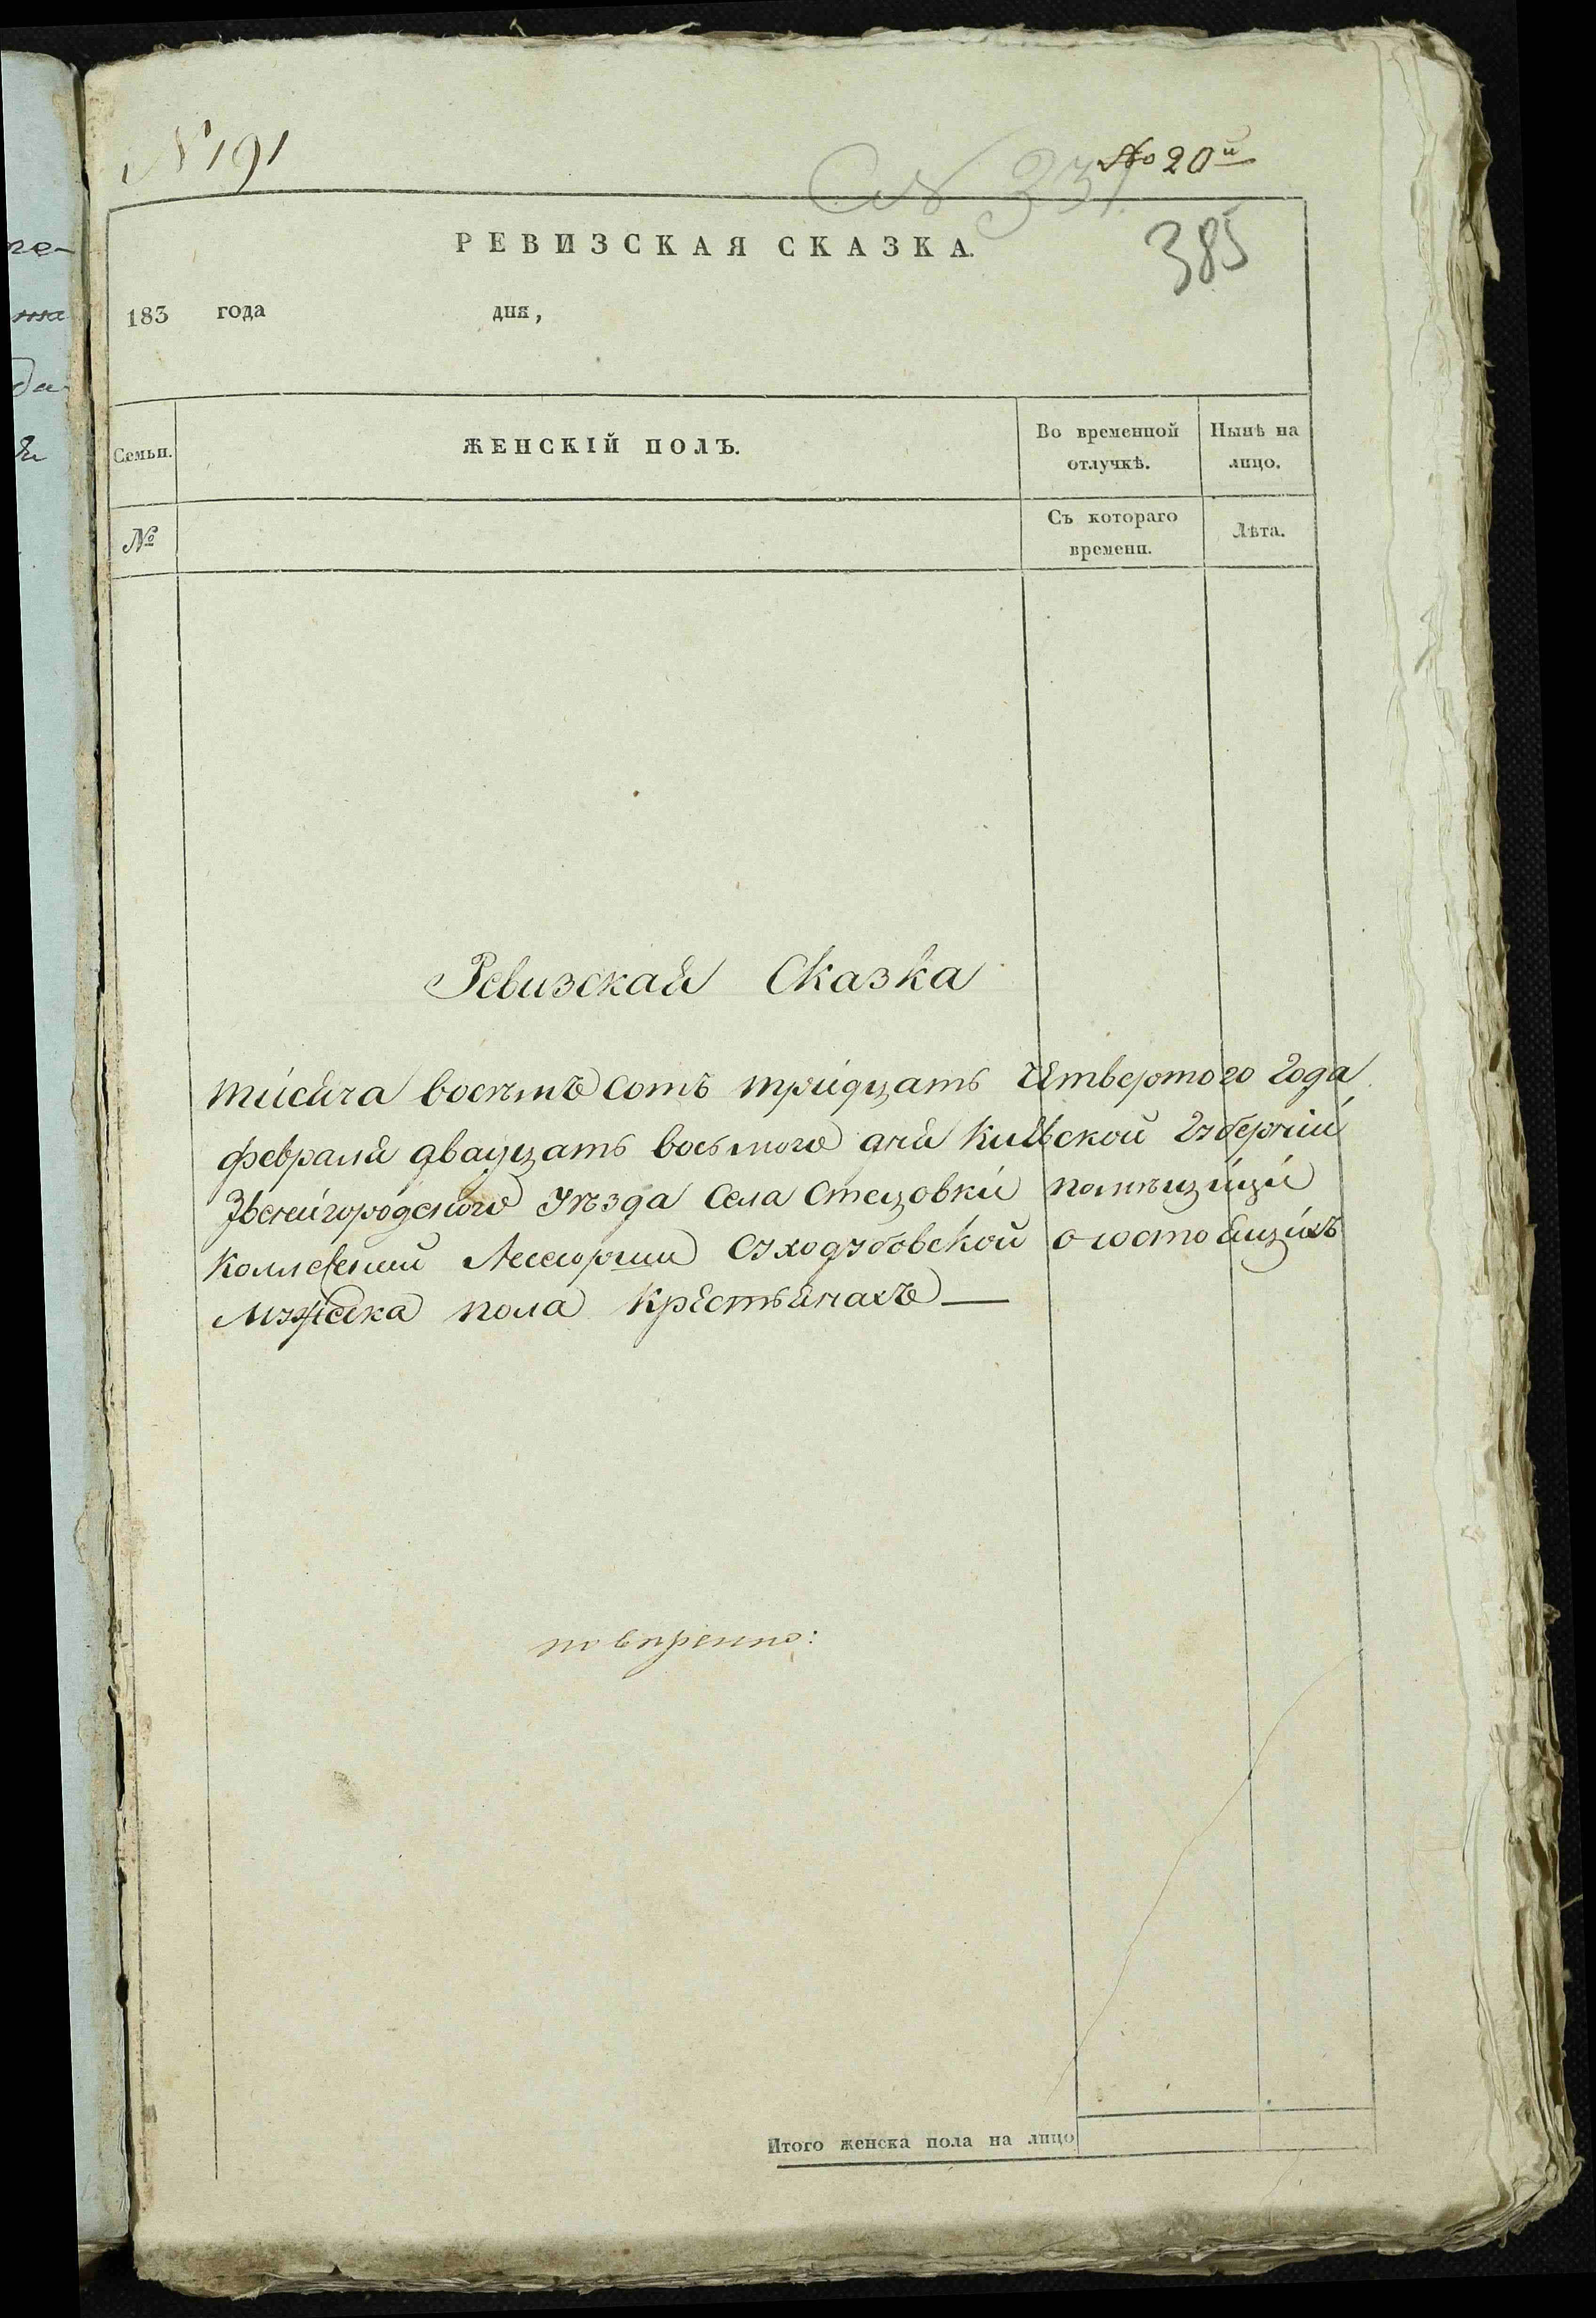 № 191
№ 20й
№ 331
385
РЕВИЗСКАЯ СКАЗКА.
183 года дня,
Семьи. ЖЕНСКІЙ ПОЛЪ. Во временной отлучкѣ. Нынѣ на лицо.
№ Съ котораго времени. Лѣта.
Ревизская Сказка
тисяча восѣмъ сотъ тридцать четвертого года
февраля двадцать восьмого дня Киевской Губерніи
Звенигородского Уѣзда Села Стецовки помѣщици
Асессорши Суходубовской о состоящихъ
Мужеска пола крестьянахъ —
повѣренно:
Итого женска пола на лицо